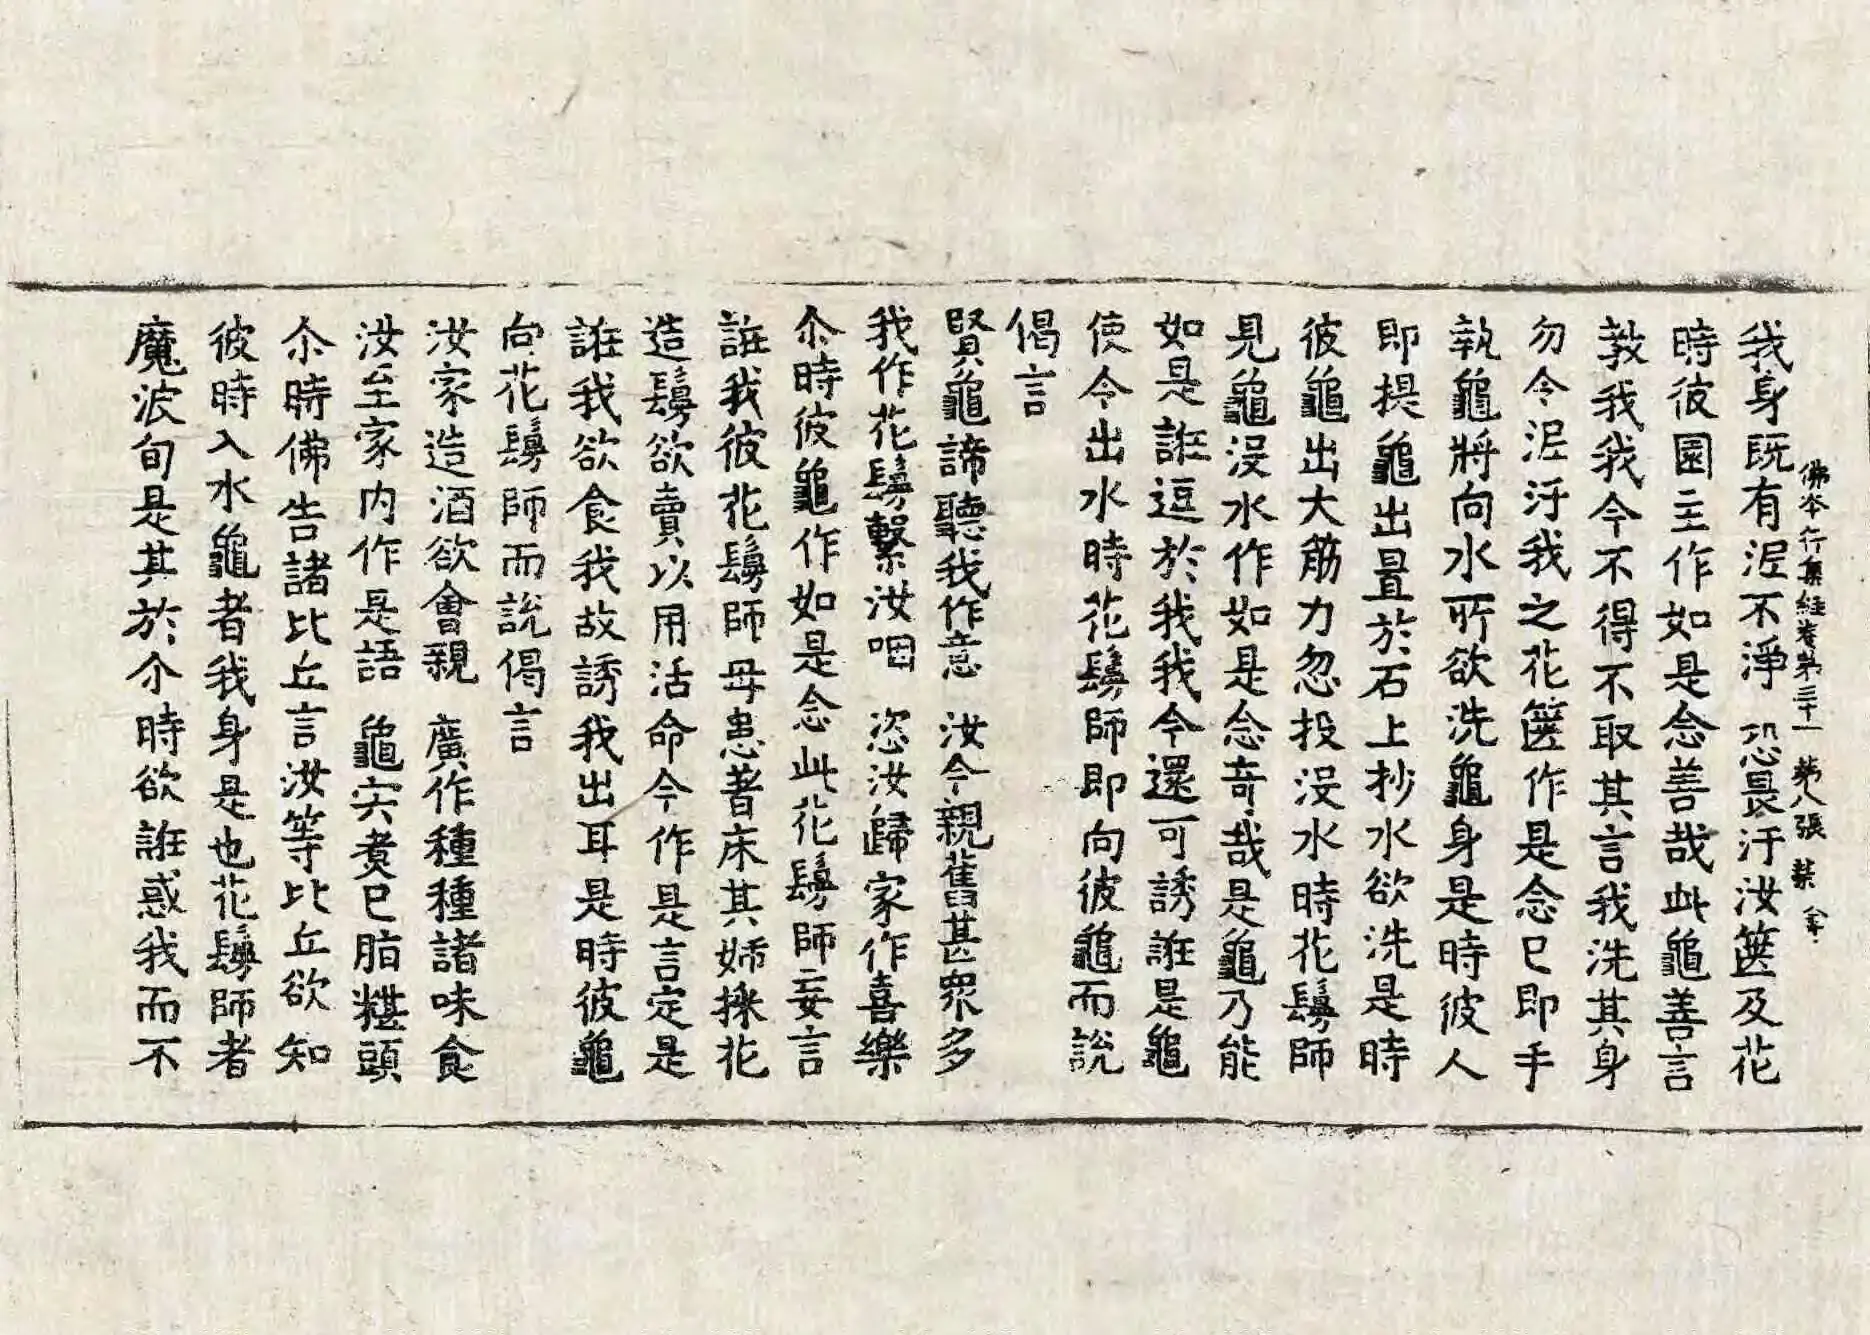 我身既有泥不淨　恐畏汙汝篋及花
佛本行集經卷第三十一　第八張　禁
時彼園主作如是念善哉此龜善言
教我我今不得不取其言我洗其身
勿令泥汙我之花篋作是念已即手
執龜將向水所欲洗龜身是時彼人
即提龜出置於石上抄水欲洗是時
彼龜出大筋力忽投没水時花鬘師
見龜没水作如是念奇哉是龜乃能
如是誑逗於我我今還可誘誑是龜
使令出水時花鬘師即向彼龜而說
偈言
賢龜諦聽我作意　汝今親舊甚眾多
我作花鬘繫汝咽　恣汝歸家作喜樂
尒時彼龜作如是念此花鬘師妄言
誑我彼花鬘師母患著床其姊採花
造鬘欲賣以用活命今作是言定是
誑我欲食我故誘我出耳是時彼龜
向花鬘師而說偈言
汝家造酒欲會親　廣作種種諸味食
汝至家内作是語　龜宍煑已脂糂頭
尒時佛告諸比丘言汝等比丘欲知
彼時入水龜者我身是也花鬘師者
魔波旬是其於尒時欲誑惑我而不